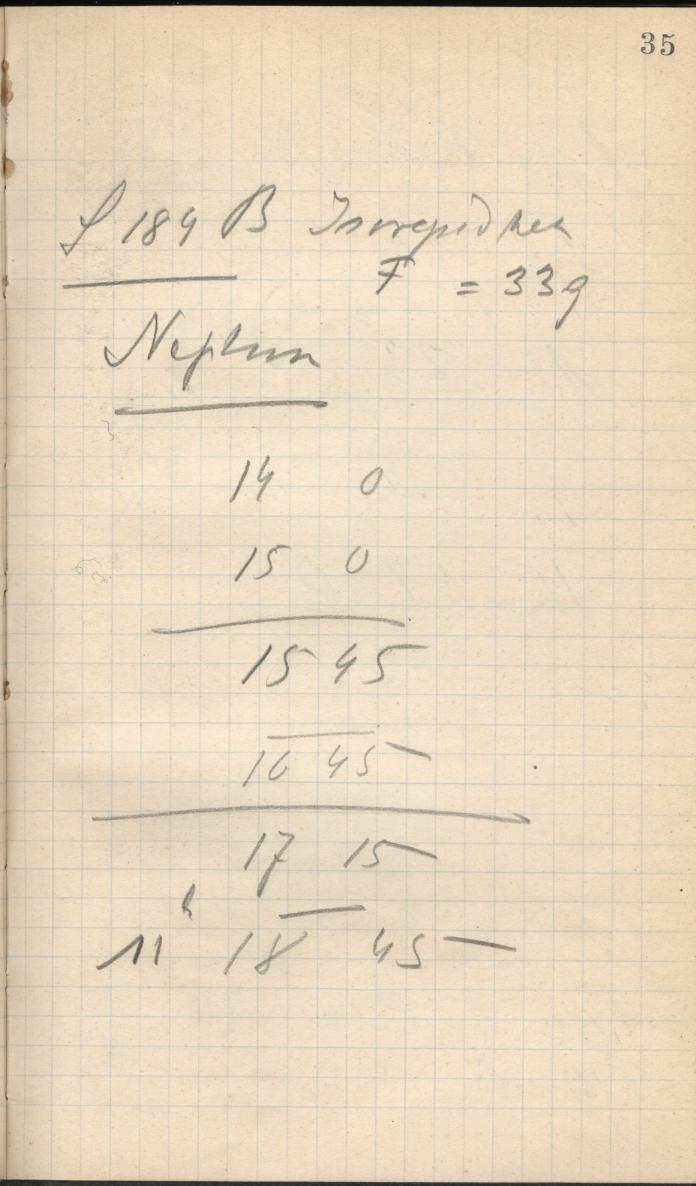 35
184 B
F = 339
Neptun
14 0
15 0
15 45
16 45
17 15
11 h 18 45